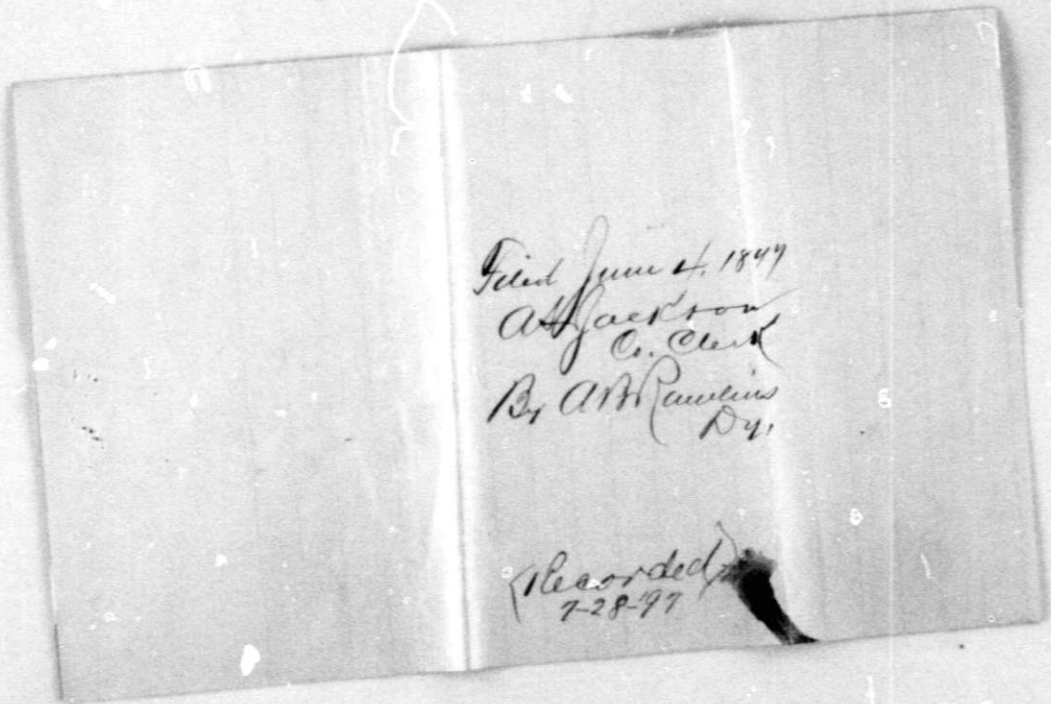 Filed June 4, 1897
A H Jackson
Co. Clerk
By A B Rawlins
Dy.
(Recorded)
7-28-97